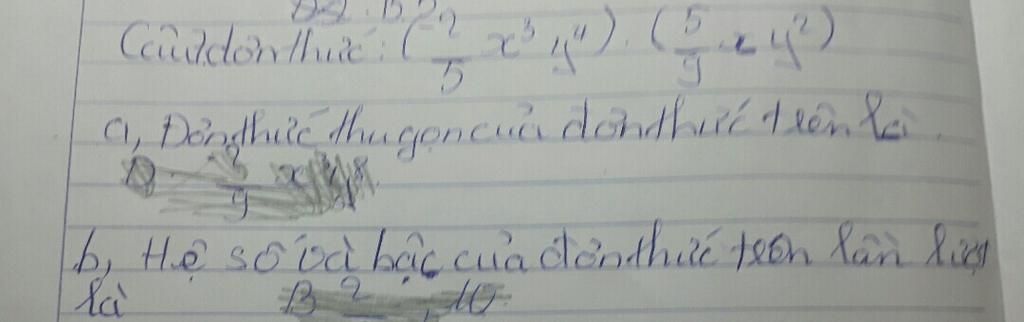 Câu7đơn thức: (-2/5 x³ y⁴) . (5/9 x y²)
a, Đơn thức thu gọn của đơn thức trên là
b, Hệ số và bậc của đơn thức trên lần lượt
là